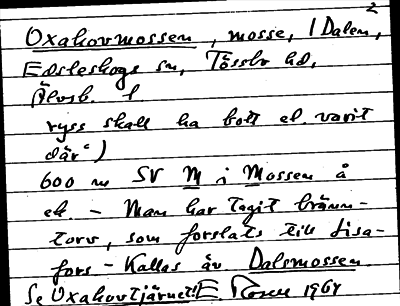 2
Oxahovmossen, mosse, i Dalen,
Edsleskogs sn, Tössbo hd,
Älvsb. l
ryss skall ha bott el. varit
där")
600 m SV M i Mossen å
ek. - Man har tagit bränn-
torv, som forslats till Lisa-
fors - Kallas äv Dalsmossen.
Se Oxahovtjärnet! E 1964